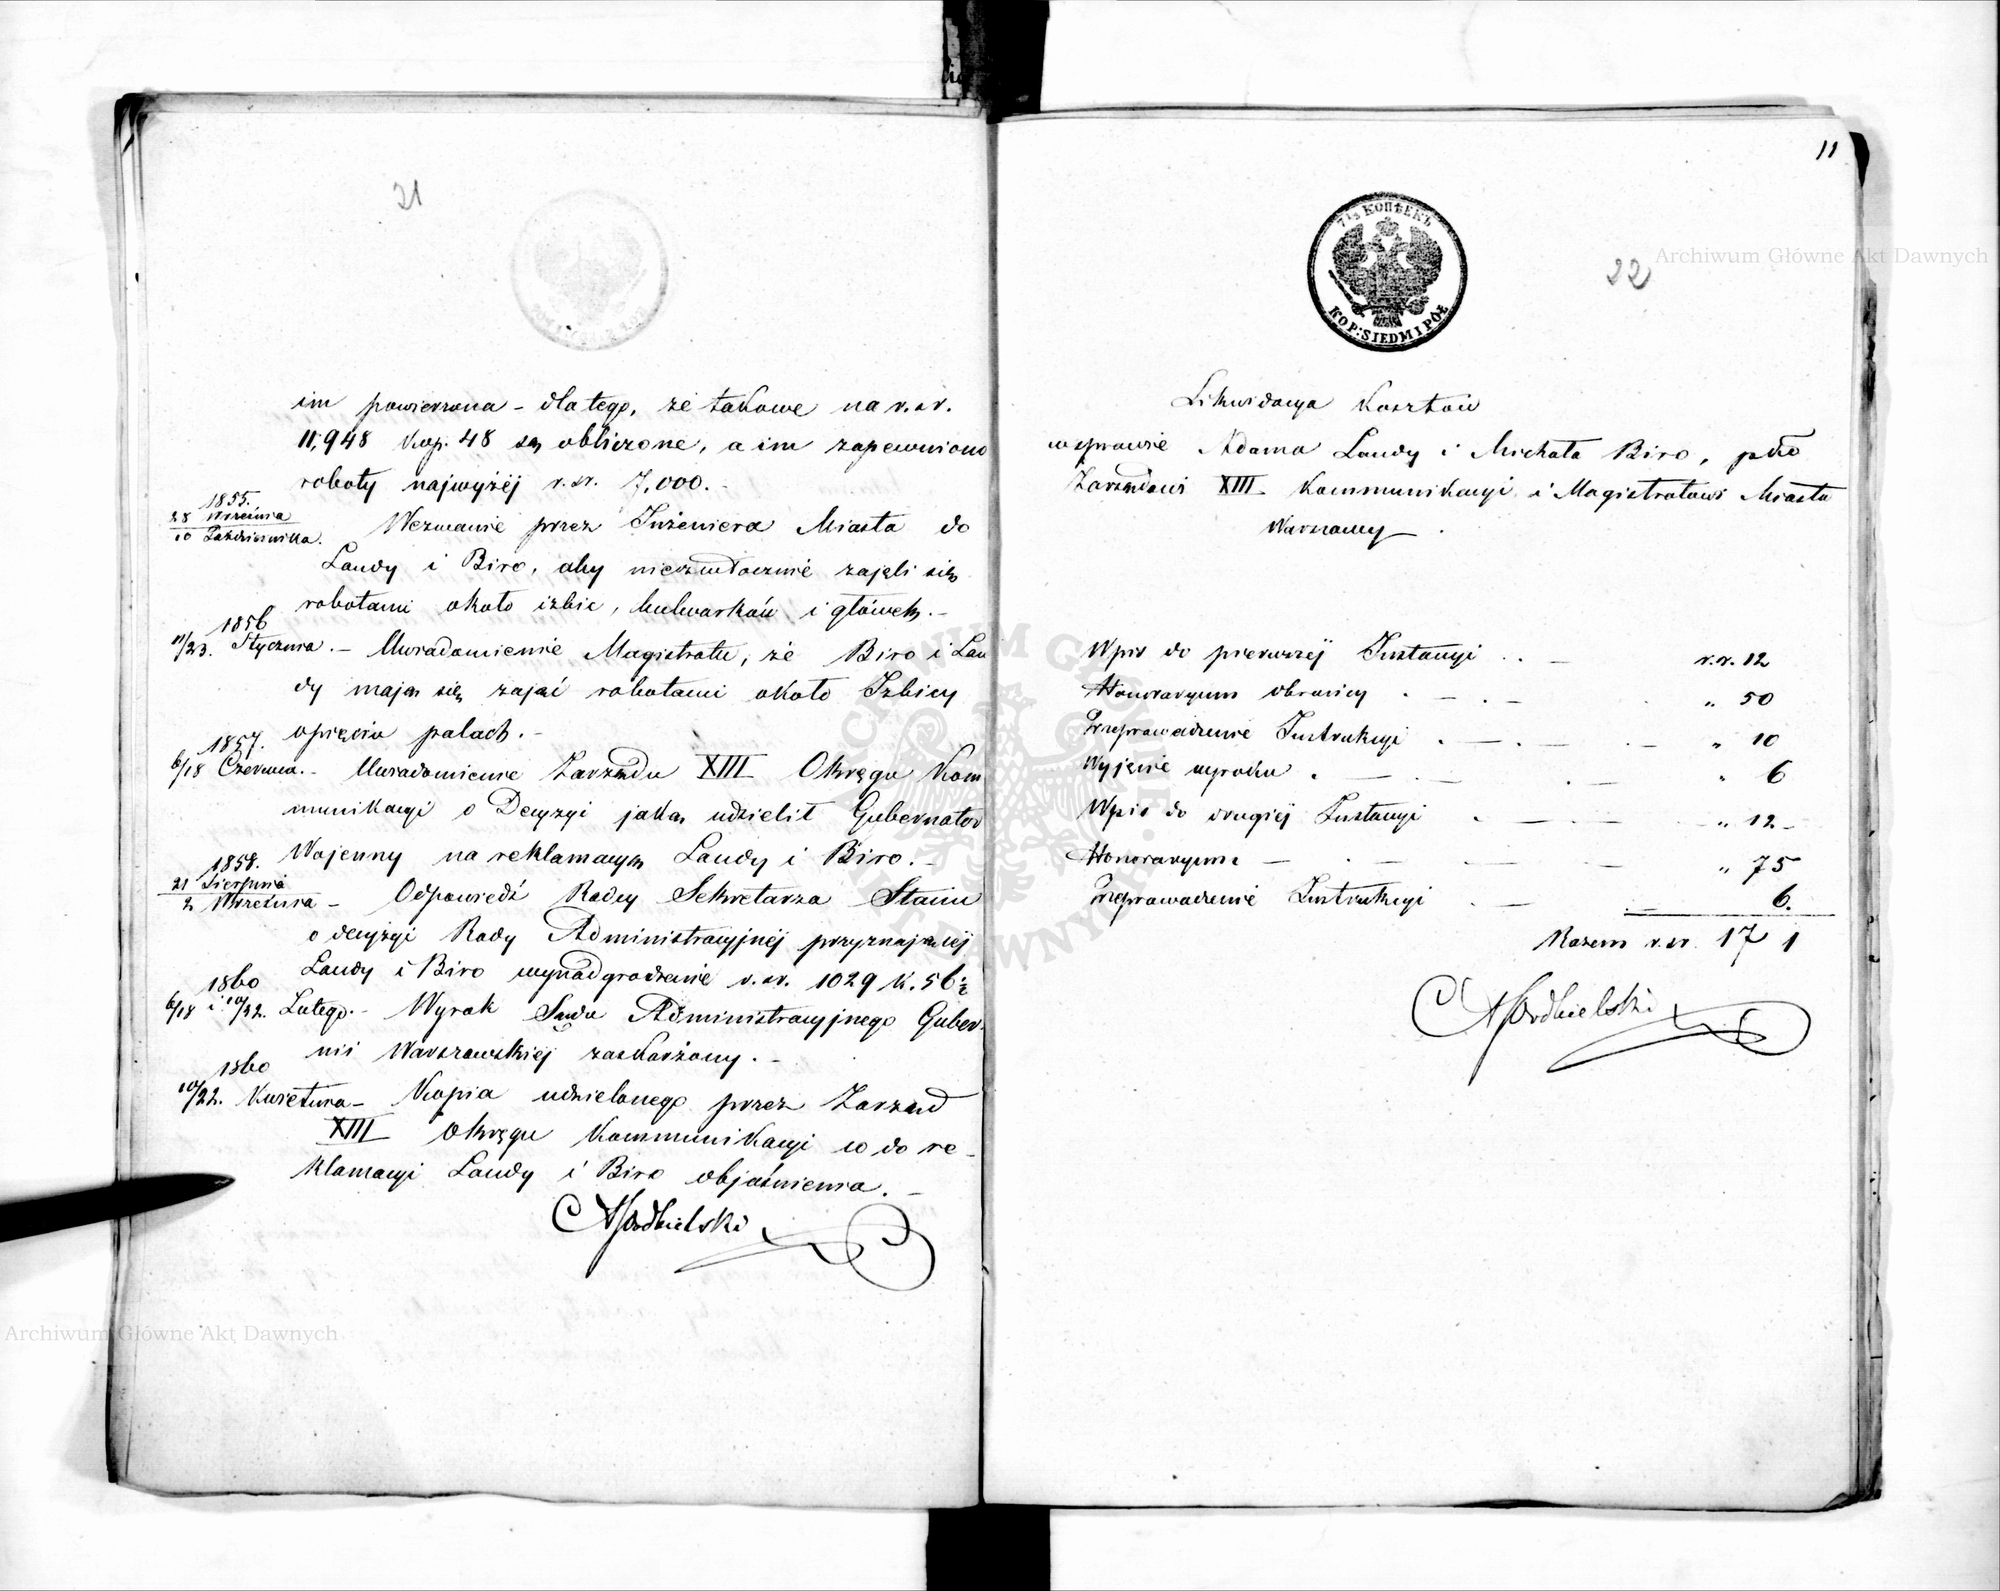 21
im powierzona – dlatego, że takowe na r. sr.
11,948 kop. 48 są obliczone, a im zapewniono
roboty najwyżej r. sr. 7,000. –
1855.
28 Września
10 Października. Wezwanie przez Inżeniera Miasta do
Landy i Biro, aby niezwłocznie zajęli się
robotami około izbic, bulwarków i główek. –
1856
11/23. Stycznia. – Uwiadomienie Magistratu, że Biro i Lan
dy mają się zająć robotami około Izbicy
opięciu palach. –
1857.
6/18 Czerwca. – Uwiadomienie Zarządu XIII Okręgu Kom
munikacyi o Decyzyi jaką udzielił Gubernator
Wojenny na reklamacyą Landy i Biro. –
1858.
21 Sierpnia
2 Września – Odpowiedź Rady Sekretarza Stanu
o decyzyi Rady Administracyjnéj przyznającéj
Landy i Biro wynadgrodzenie r. sr. 1029 k. 56½
1860
6/18 i 10/22. Lutego. – Wyrok Sądu Administracyjnego Guber-
nii Warszawskiéj zaskarżony. –
1860
10/22. Kwietnia – Kopia udzielonego przez Zarząd
XIII Okręgu Kommunikacyi co do re-
klamacyi Landy i Biro objaśnienia. –
11
7½ КОПѢЕКЪ
KOP: SIEDM I PÓŁ
22
Likwidacya Kosztów
w sprawie Adama Landy i Michała Biro, pko
Zarządowi XIII Kommunikacyi i Magistratowi Miasta
Warszawy.
Wpis do pierwszéj Instancyi . . – r. sr. 12
Honoraryum obrończy . – . – „ 50
Przeprowadzenie Instrukcyi . – . – . – „ 10
Wyjęcie wyroku . – – . – „ 6
Wpis do drugiéj Instancyi . – . – – „ 12 –
Honoraryum – . – – – „ 75
Przeprowadzenie Instrukcyi . – – 6.
Razem r. sr. 171
Archiwum Główne Akt Dawnych
Archiwum Główne Akt Dawnych
ARCHIWUM GŁÓWNE AKT DAWNYCH